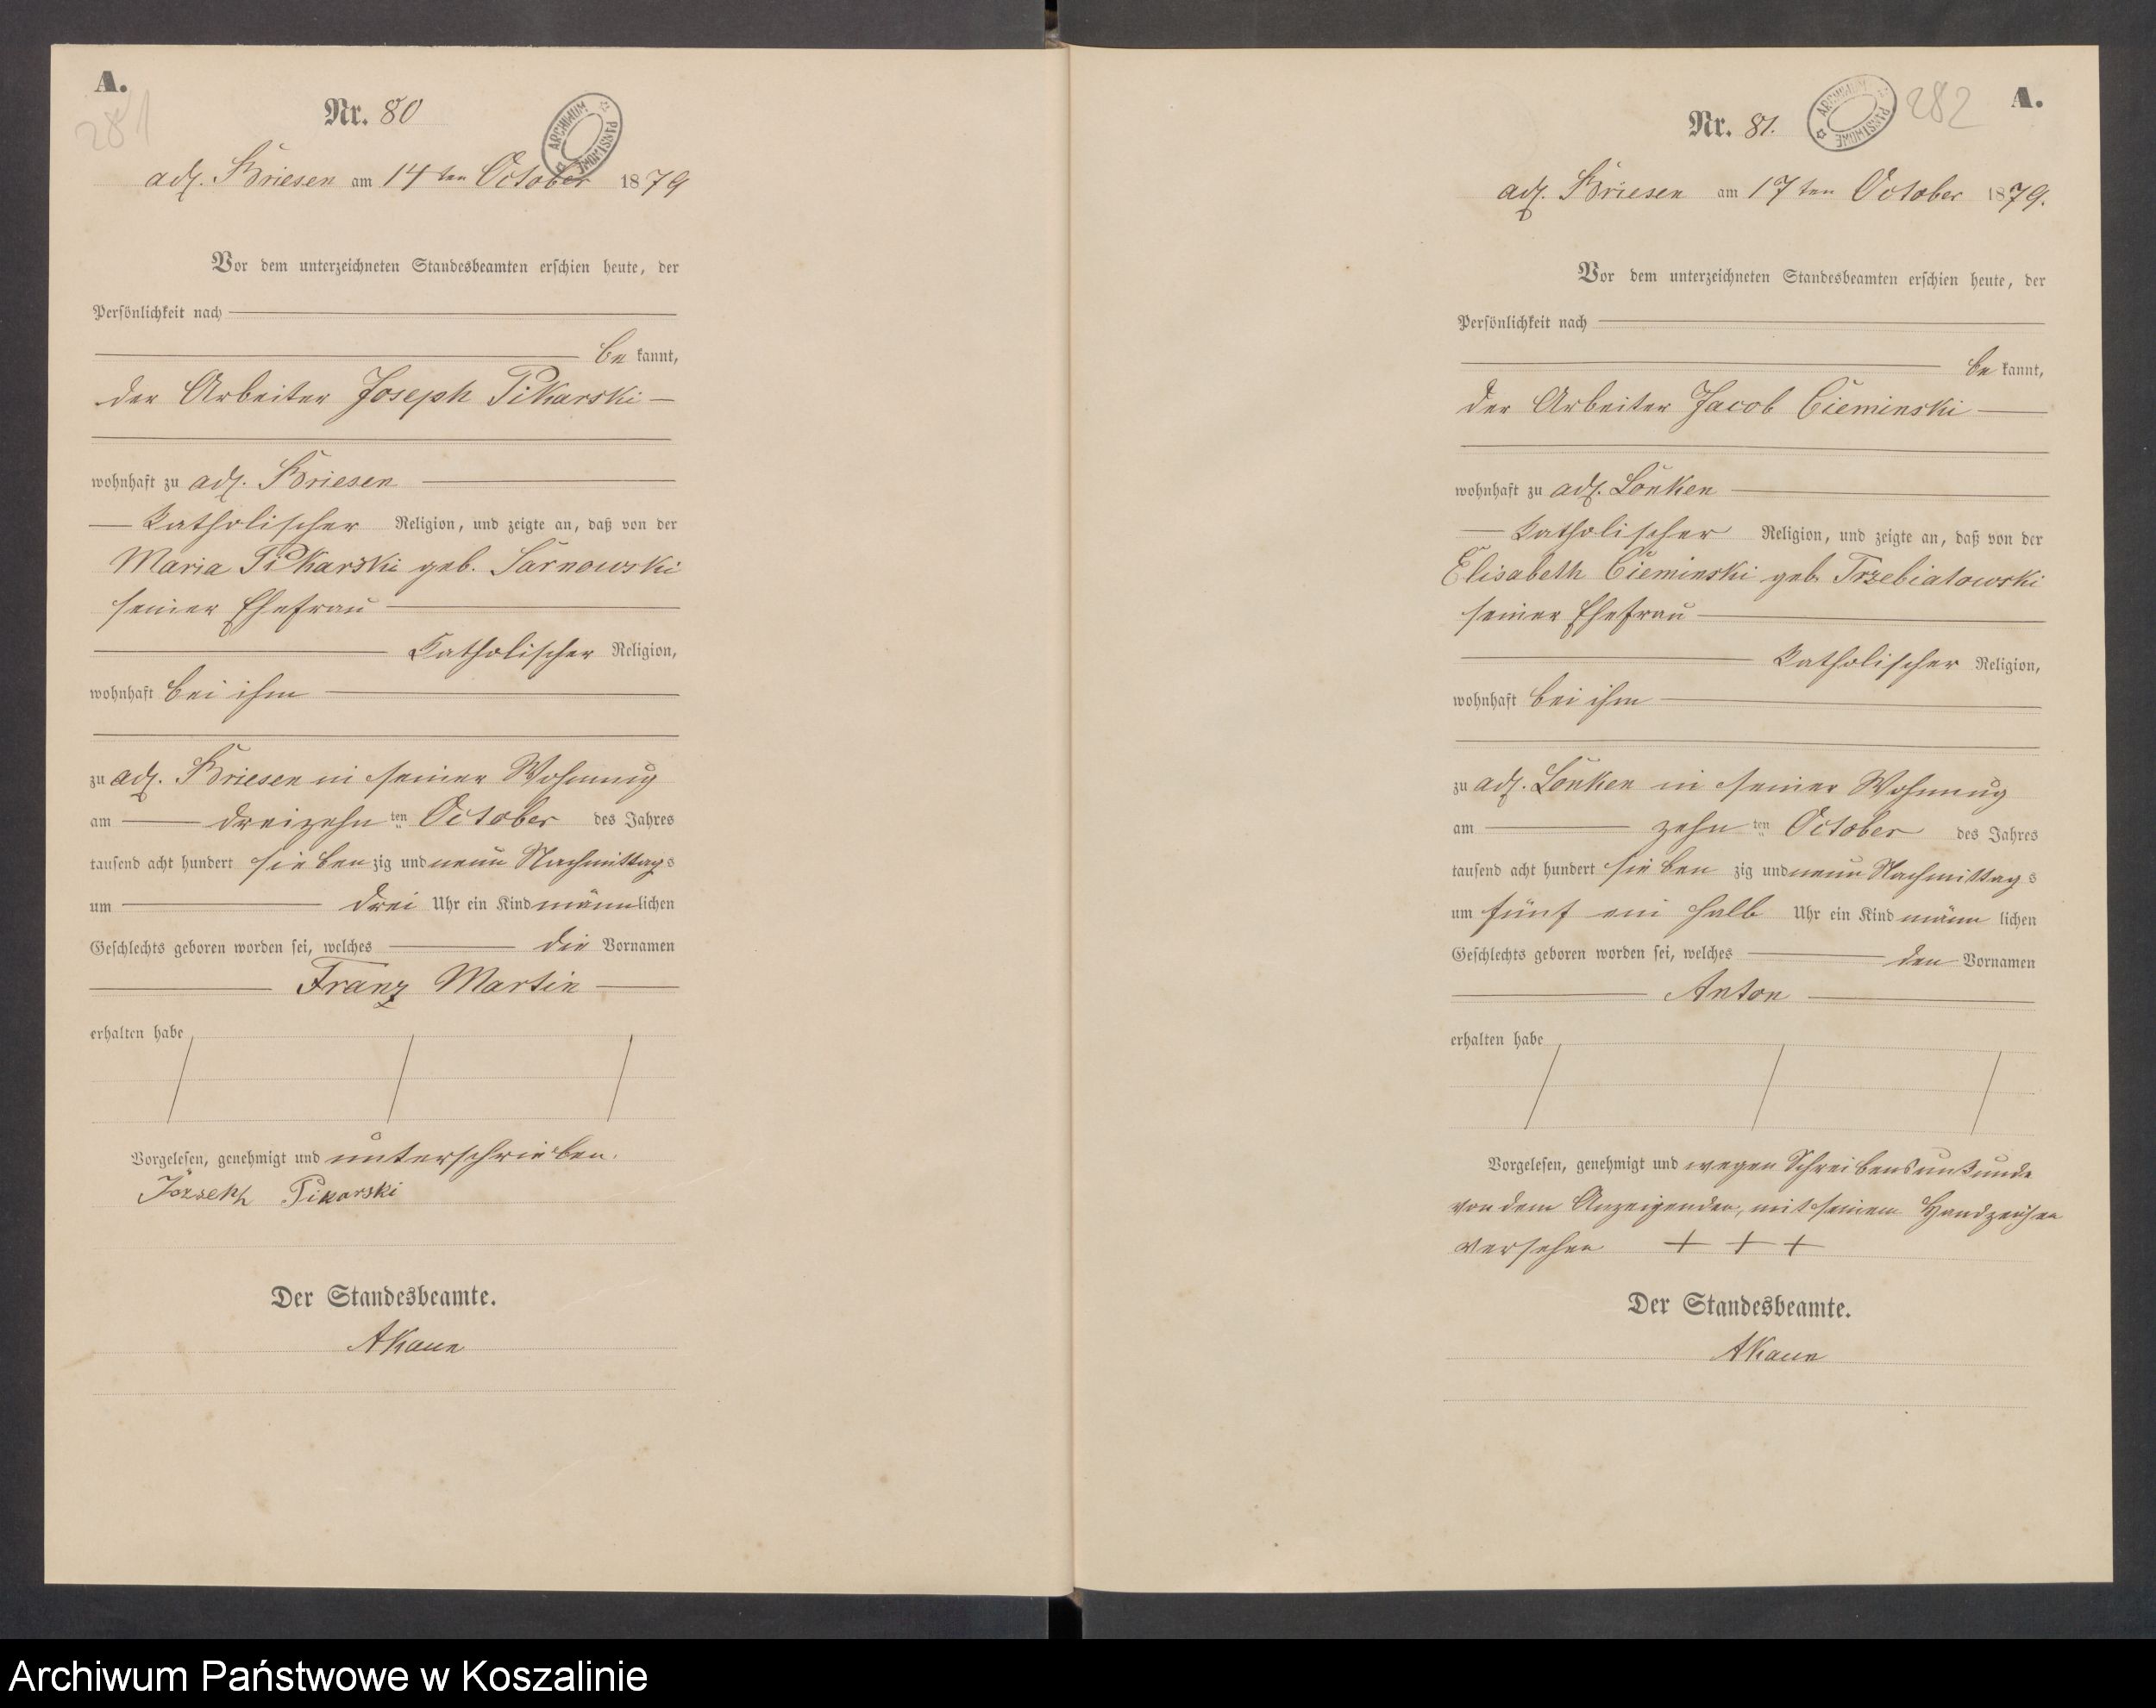 A.
281
Nr. 80
ARCHIWUM PAŃSTWOWE
adl. Briesen am 14 ten October 1879
Vor dem unterzeichneten Standesbeamten erschien heute, der
Persönlichkeit nach
be kannt,
der Arbeiter Joseph Pikarski
wohnhaft zu adl. Briesen
katholischer Religion, und zeigte an, daß von der
Maria Pikarski geb. Sarnowski
seiner Ehefrau
katholischer Religion,
wohnhaft bei ihm
zu adl. Briesen in seiner Wohnung
am dreizehn ten October des Jahres
tausend acht hundert sieben zig und neun Nachmittags
um drei Uhr ein Kind männlichen
Geschlechts geboren worden sei, welches die Vornamen
Franz Martin
erhalten habe
Vorgelesen, genehmigt und unterschrieben.
Józseph Pikarski
Der Standesbeamte.
AKaun
A.
282
Nr. 81.
ARCHIWUM PAŃSTWOWE
adl. Briesen am 17 ten October 1879.
Vor dem unterzeichneten Standesbeamten erschien heute, der
Persönlichkeit nach
be kannt,
der Arbeiter Jacob Cieminski
wohnhaft zu adl. Lonken
katholischer Religion, und zeigte an, daß von der
Elisabeth Cieminski geb. Trzebiatowski
seiner Ehefrau
katholischer Religion,
wohnhaft bei ihm
zu adl. Lonken in seiner Wohnung
am zehn ten October des Jahres
tausend acht hundert sieben zig und neun Nachmittags
um fünf ein halb Uhr ein Kind männ lichen
Geschlechts geboren worden sei, welches den Vornamen
Anton
erhalten habe
Vorgelesen, genehmigt und wegen Schreibensunkunde
von dem Anzeigenden, mit seinem Handzeichen
versehen + + +
Der Standesbeamte.
AKaun
Archiwum Państwowe w Koszalinie